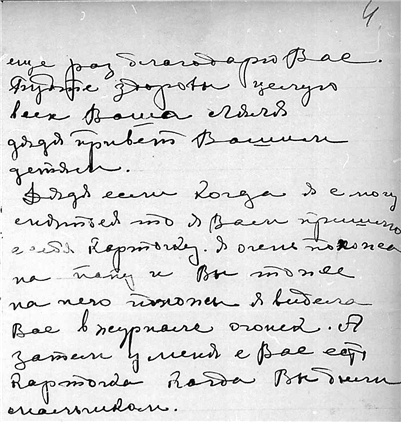 4
еще раз благодарю Вас.
Будте здоровы целую
всех Ваша Ляля
дядя привет Вашим
детям.
Дядя если когда я смогу
сняться то я Вам пришлю
карточку. я очень похожа
на папу и Вы тоже
на него похожи я видела
Вас в журнале огонек. А
затем у меня с Вас есть
карточка когда Вы были
мальчиком.